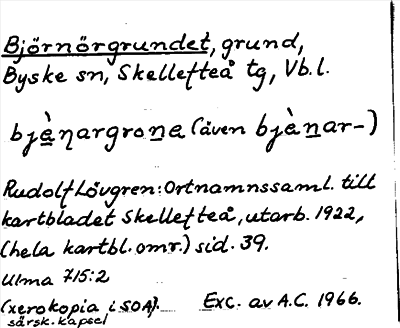 Björnörgrundet, grund,
Byske sn, Skellefteå tg, Vb.l.
bjènargrona (även bjènar-)
Rudolf Lövgren: Ortnamnssaml. till
kartbladet Skellefteå, utarb. 1922,
(hela kartbl. omr.) sid. 39.
Ulma 715:2
(xerokopia i SOA). Exc. av A.C. 1966.
särsk. kapsel